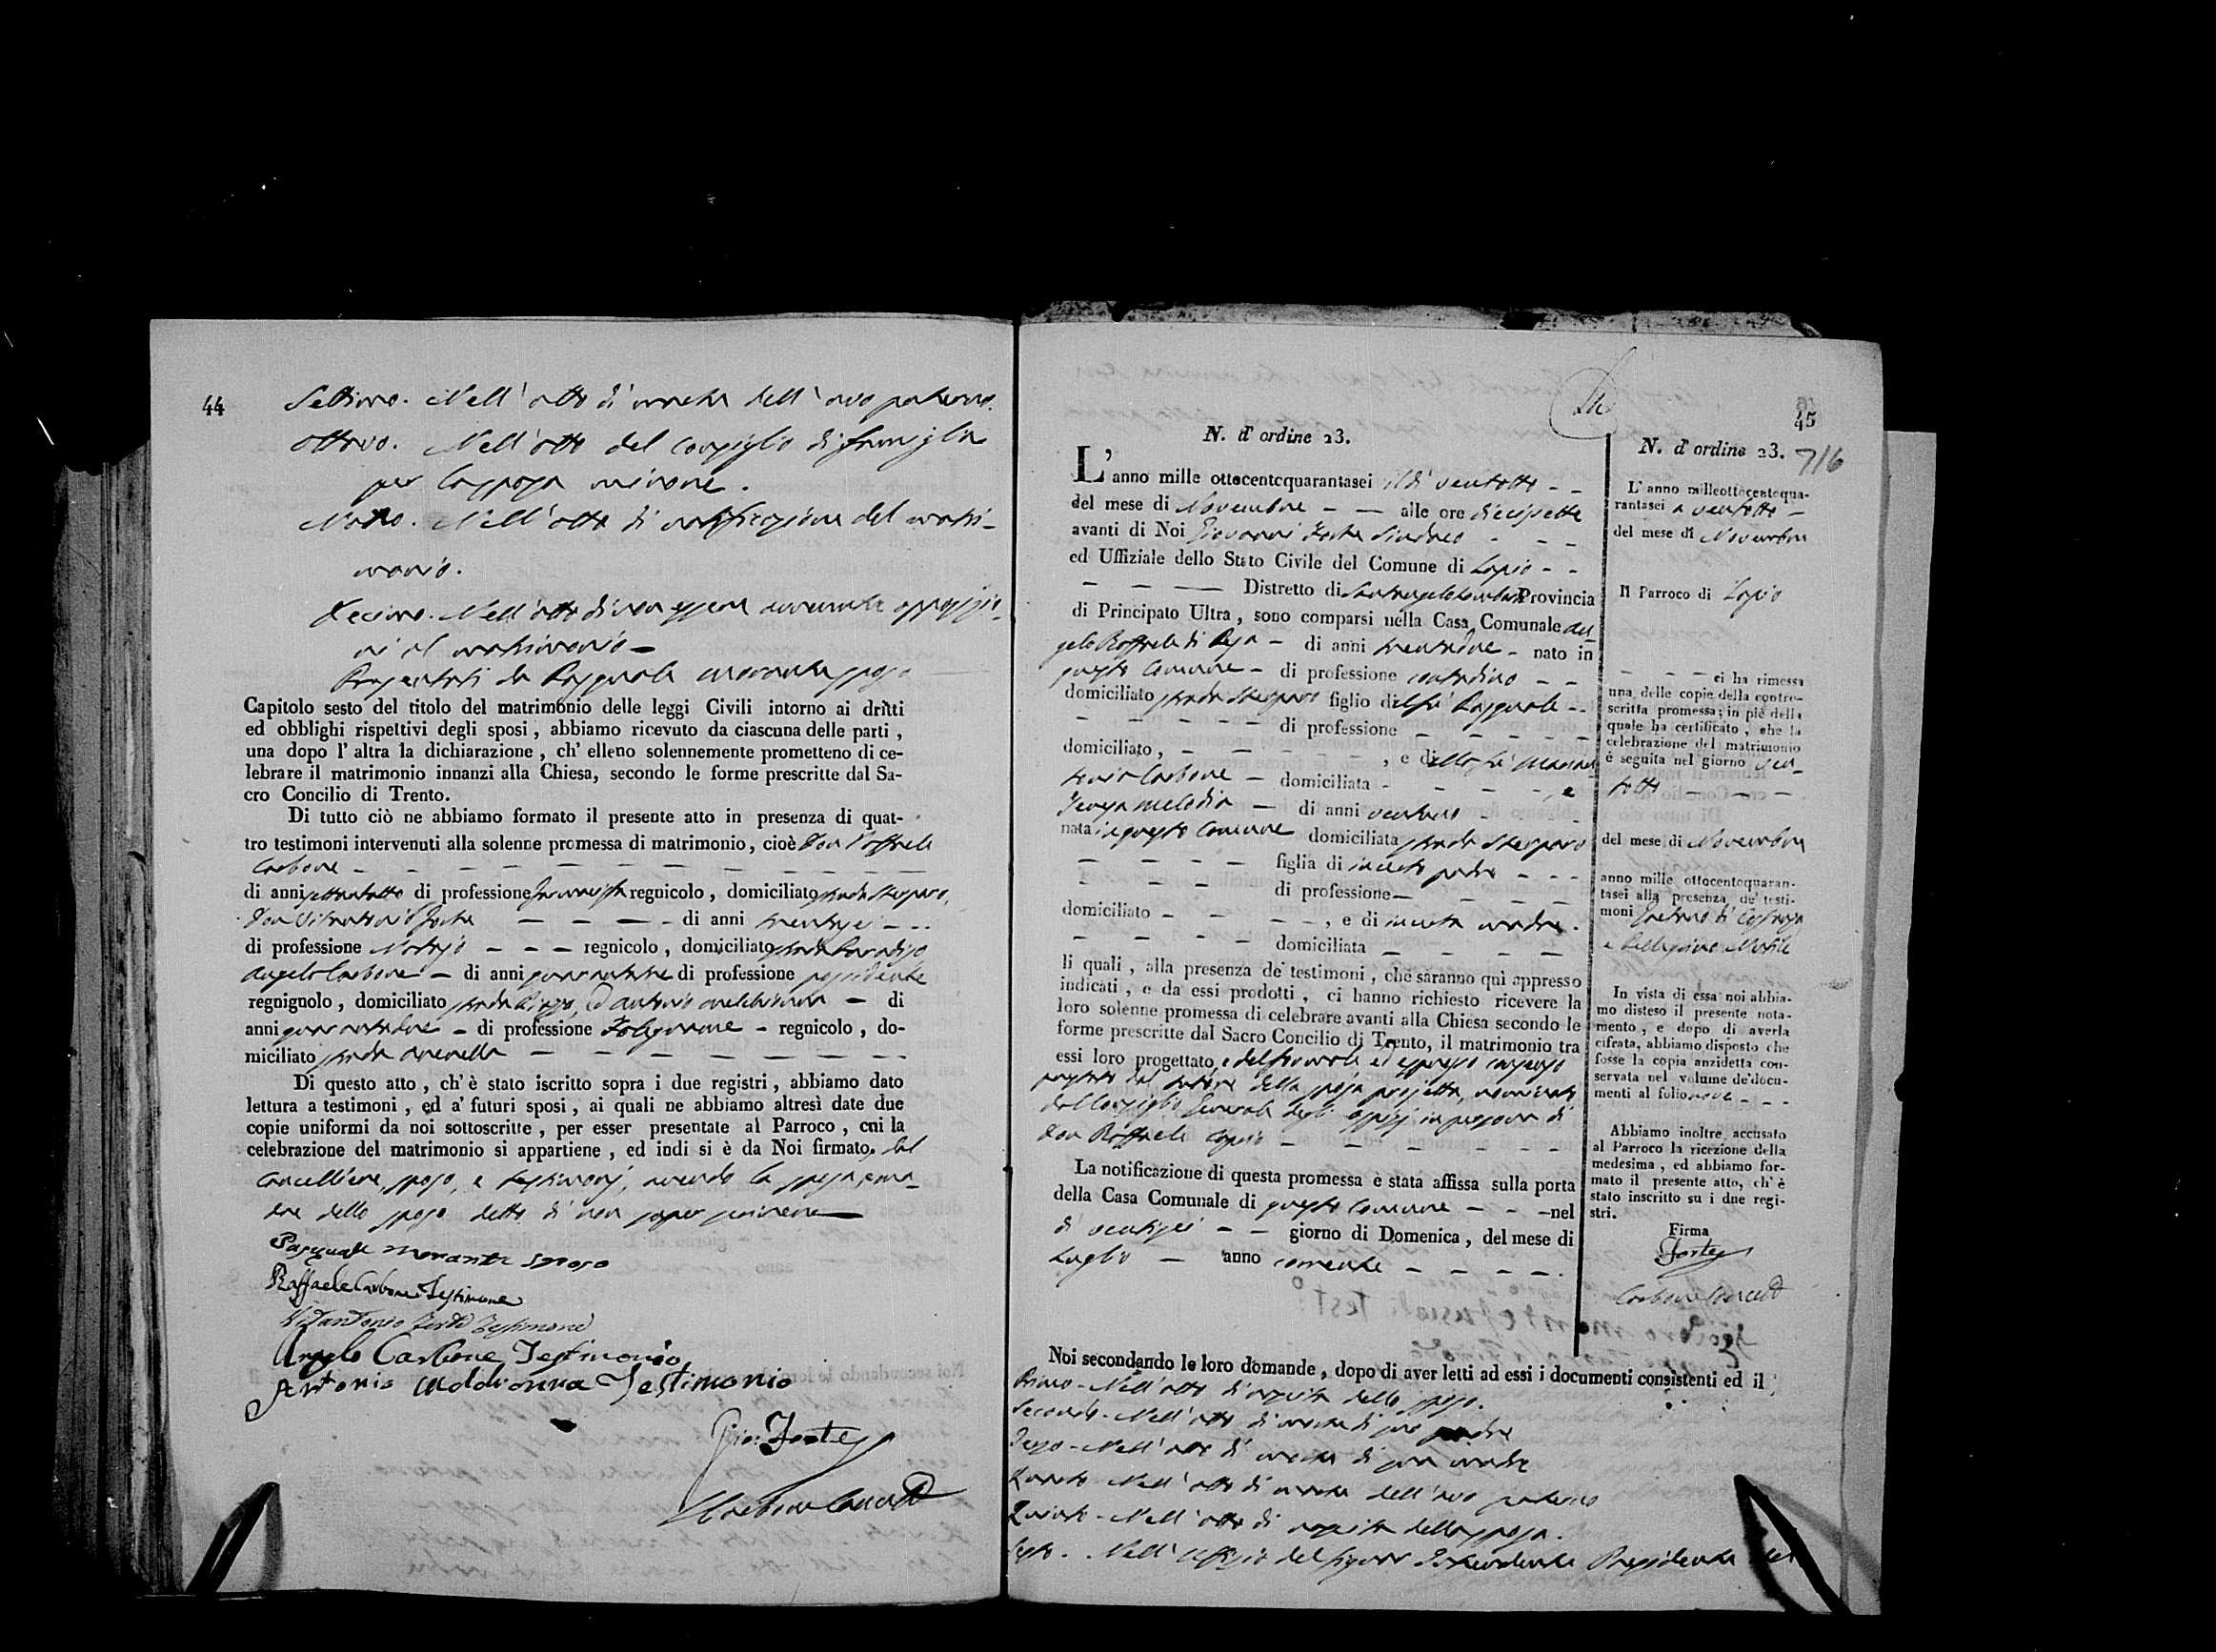 44
Settimo. Nell'atto di morte dell'avo paterno.
Ottavo. Nell'atto del consiglio di famiglia
per la sposa minore.
Nono. Nell'atto di notificazione del matri-
monio.
Decimo. Nell'atto di non essere avvenute opposizio-
ni al matrimonio —
Presentati da Pasquale Morante sposo
Capitolo sesto del titolo del matrimonio delle leggi Civili intorno ai dritti
ed obblighi rispettivi degli sposi, abbiamo ricevuto da ciascuna delle parti,
una dopo l'altra la dichiarazione, ch'elleno solennemente prometteno di ce-
lebrare il matrimonio innanzi alla Chiesa, secondo le forme prescritte dal Sa-
cro Concilio di Trento.
Di tutto ciò ne abbiamo formato il presente atto in presenza di quat-
tro testimoni intervenuti alla solenne promessa di matrimonio, cioè Don Raffaele
Carbone
di anni settantotto di professione regnicolo, domiciliato strada
Don Vitantonio Forte di anni trentasei
di professione Notajo regnicolo, domiciliato strada Paradiso
Angelo Carbone di anni di professione possidente
regnignolo, domiciliato strada ed Antonio di
anni quarantadue di professione Falegname regnicolo, do-
miciliato strada
Di questo atto, ch'è stato iscritto sopra i due registri, abbiamo dato
lettura a testimoni, ed a' futuri sposi, ai quali ne abbiamo altresì date due
copie uniformi da noi sottoscritte, per esser presentate al Parroco, cni la
celebrazione del matrimonio si appartiene, ed indi si è da Noi firmato, dal
Cancelliere, sposo, e testimonj, avendo la sposa, e ma-
dre dello sposo detto di non saper scrivere
Pasquale Morante Sposo
Raffaele Carbone Testimone
Vitantonio Forte Testimone
Angelo Carbone Testimonio
Antonio Testimonio
Gio: Forte
Carbone
45
N. d'ordine 23.
L'anno mille ottocentoquarantasei il dì ventotto
del mese di Novembre alle ore diecisette
avanti di Noi Giovanni Forte Sindaco
ed Uffiziale dello Stato Civile del Comune di Lapio
Distretto di Santangelo Lombardi Provincia
di Principato Ultra, sono comparsi nella Casa Comunale An-
gelo Raffaele di di anni trentadue nato in
questo Comune di professione contadino
domiciliato strada figlio del fu Pasquale
di professione
domiciliato, , e della fu Marian-
tonia Carbone domiciliata , e
Teresa Melodia di anni ventuno
nata in questo Comune domiciliata strada
figlia di incerto padre
di professione
domiciliato , e di incerta madre.
domiciliata
li quali, alla presenza de' testimoni, che saranno quì appresso
indicati, e da essi prodotti, ci hanno richiesto ricevere la
loro solenne promessa di celebrare avanti alla Chiesa secondo le
forme prescritte dal Sacro Concilio di Trento, il matrimonio tra
essi loro progettato, e del formale ed espresso consenso
prestato dal tutore della sposa projetta, nominato
dal Consiglio Generale degli Ospizj in persona di
Don Raffaele
La notificazione di questa promessa è stata affissa sulla porta
della Casa Comunale di questo Comune nel
dì ventisei giorno di Domenica, del mese di
Luglio anno corrente
Noi secondando le loro domande, dopo di aver letti ad essi i documenti consistenti ed il
Primo - Nell'atto di nascita dello sposo.
Secondo - Nell'atto di morte di suo padre
Terzo - Nell'atto di morte di sua madre
Quarto - Nell'atto di morte dell'avo paterno
Quinto - Nell'atto di nascita della sposa.
Sesto. Nell'Uffizio del Signor Intendente Presidente del
N. d'ordine 23.
716
L'anno milleottocentoqua-
rantasei a ventotto
del mese di Novembre
Il Parroco di Lapio
ci ha rimessa
una delle copie della contro-
scritta promessa; in piè della
quale ha certificato, che la
celebrazione del matrimonio
è seguita nel giorno ven-
totto
del mese di Novembre
anno mille ottocentoquaran-
tasei alla presenza de' testi-
moni Gaetano di
e Pellegrino
In vista di essa noi abbia-
mo disteso il presente nota-
mento, e dopo di averla
cifrata, abbiamo disposto che
fosse la copia anzidetta con-
servata nel volume de'docu-
menti al folio nove
Abbiamo inoltre accusato
al Parroco la ricezione della
medesima, ed abbiamo for-
mato il presente atto, ch'è
stato inscritto su i due regi-
stri.
Firma
Forte
Carbone